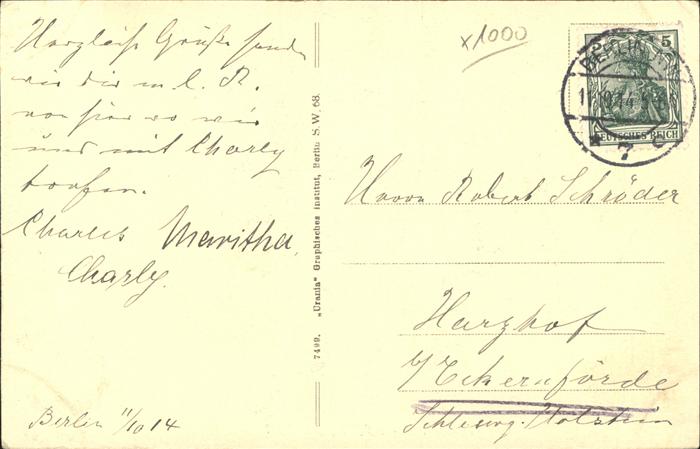 Herzliche Grüße senden
wir dir m. l. R.
von hier wo wir
uns mit Charly
trafen.
Charles Maritha,
Charly.
Berlin 11/10 14
7499. „Urania" Graphisches Institut, Berlin S.W. 68.
x1000
5
BERLIN
14
DEUTSCHES REICH
* 7
Herrn Robert Schröder
Harzhof
b/ Eckernförde
Schleswig-Holstein